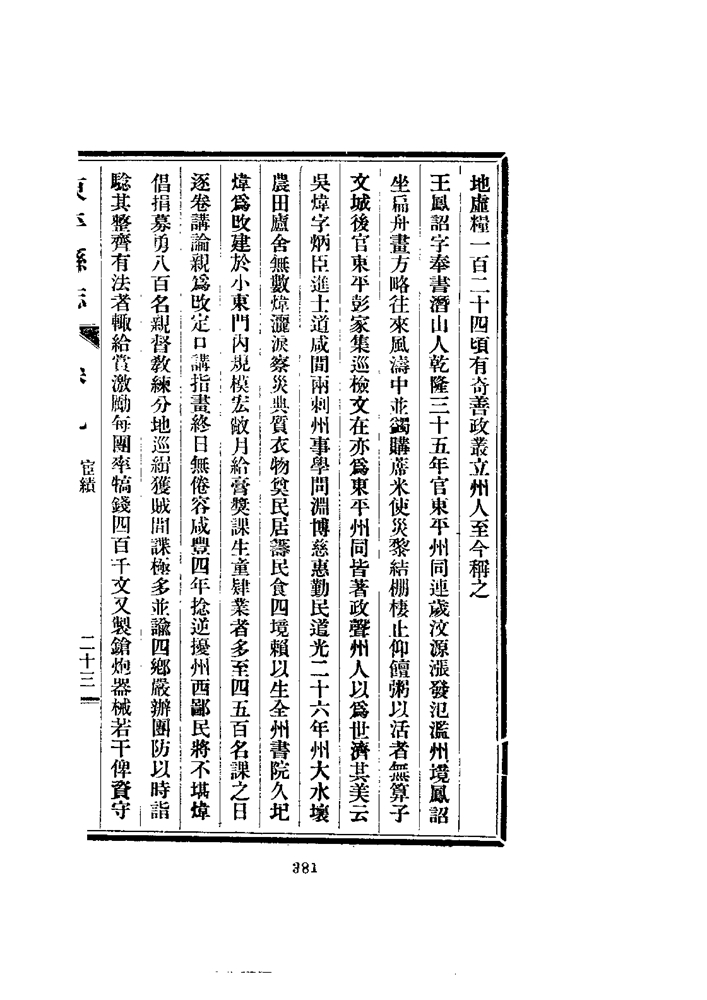 地虛糧一百二十四頃有奇善政叢立州人至今稱之
王鳳詔字奉書潛山人乾隆三十五年官東平州同連歲汶源漲發氾濫州境鳳詔
坐扁舟畫方略往來風濤中並蠲購蓆米使災黎結棚棲止仰饘粥以活者無算子
文城後官東平彭家集巡檢文在亦爲東平州同皆著政聲州人以爲世濟其美云
吳煒字炳臣進士道咸間兩刺州事學問淵博慈惠勤民道光二十六年州大水壞
農田廬舍無數煒灑淚察災典質衣物奠民居籌民食四境賴以生全州書院久圮
煒爲改建於小東門內規模宏敞月給膏獎課生童肄業者多至四五百名課之日
逐卷講論親爲改定口講指畫終日無倦容咸豐四年捻逆擾州西鄙民將不堪煒
倡捐募勇八百名親督教練分地巡緝獲賊間諜極多並諭四鄉嚴辦團防以時詣
驗其整齊有法者輒給賞激勵每團率犒錢四百千文又製鎗炮器械若干俾資守
東平縣志
卷九
宦績
二十三
381